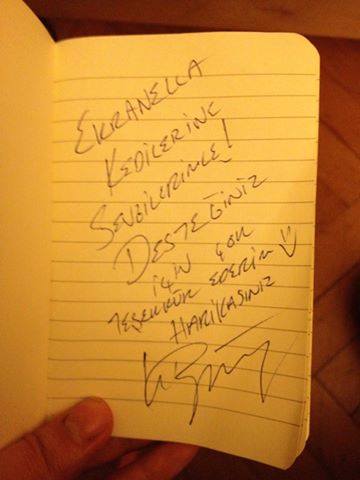 EKRANELLA
KEDİLERİNE
SEVGİLERİMLE!
DESTEĞİNİZ
İÇİN ÇOK
TEŞEKKÜR EDERİM
HARİKASINIZ